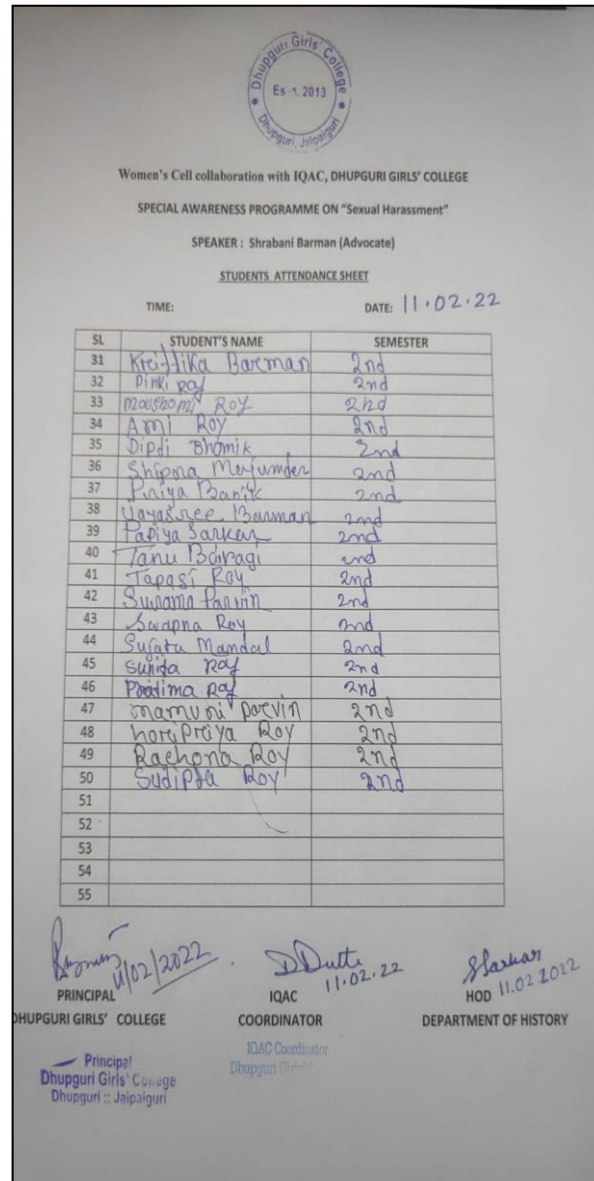 Dhupguri Girls' College
Est. 2013
Dhupguri, Jalpaiguri
Women's Cell collaboration with IQAC, DHUPGURI GIRLS' COLLEGE
SPECIAL AWARENESS PROGRAMME ON "Sexual Harassment"
SPEAKER : Shrabani Barman (Advocate)
STUDENTS ATTENDANCE SHEET
TIME: DATE: 11.02.22
SL STUDENT'S NAME SEMESTER
31 Krittika Barman 2nd
32 Pinki Ray 2nd
33 Moushomi Roy 2nd
34 Ami Roy 2nd
35 Dipdi Bhomik 2nd
36 Shipna Majumder 2nd
37 Priya Banik 2nd
38 Jayasree Barman 2nd
39 Papiya Sarkar 2nd
40 Tanu Bairagi 2nd
41 Tapasi Roy 2nd
42 Parvin 2nd
43 Swapna Roy 2nd
44 Sujata Mandal 2nd
45 Sunita Ray 2nd
46 Pratima Ray 2nd
47 mamuni parvin 2nd
48 horipriya Roy 2nd
49 Rachona Roy 2nd
50 Sudipta Roy 2nd
51
52
53
54
55
11/02/2022 DDutta 11.02.22 SSarkar 11.02.2022
PRINCIPAL IQAC HOD
DHUPGURI GIRLS' COLLEGE COORDINATOR DEPARTMENT OF HISTORY
Principal IQAC Coordinator
Dhupguri Girls' College Dhupguri Girls'
Dhupguri :: Jalpaiguri